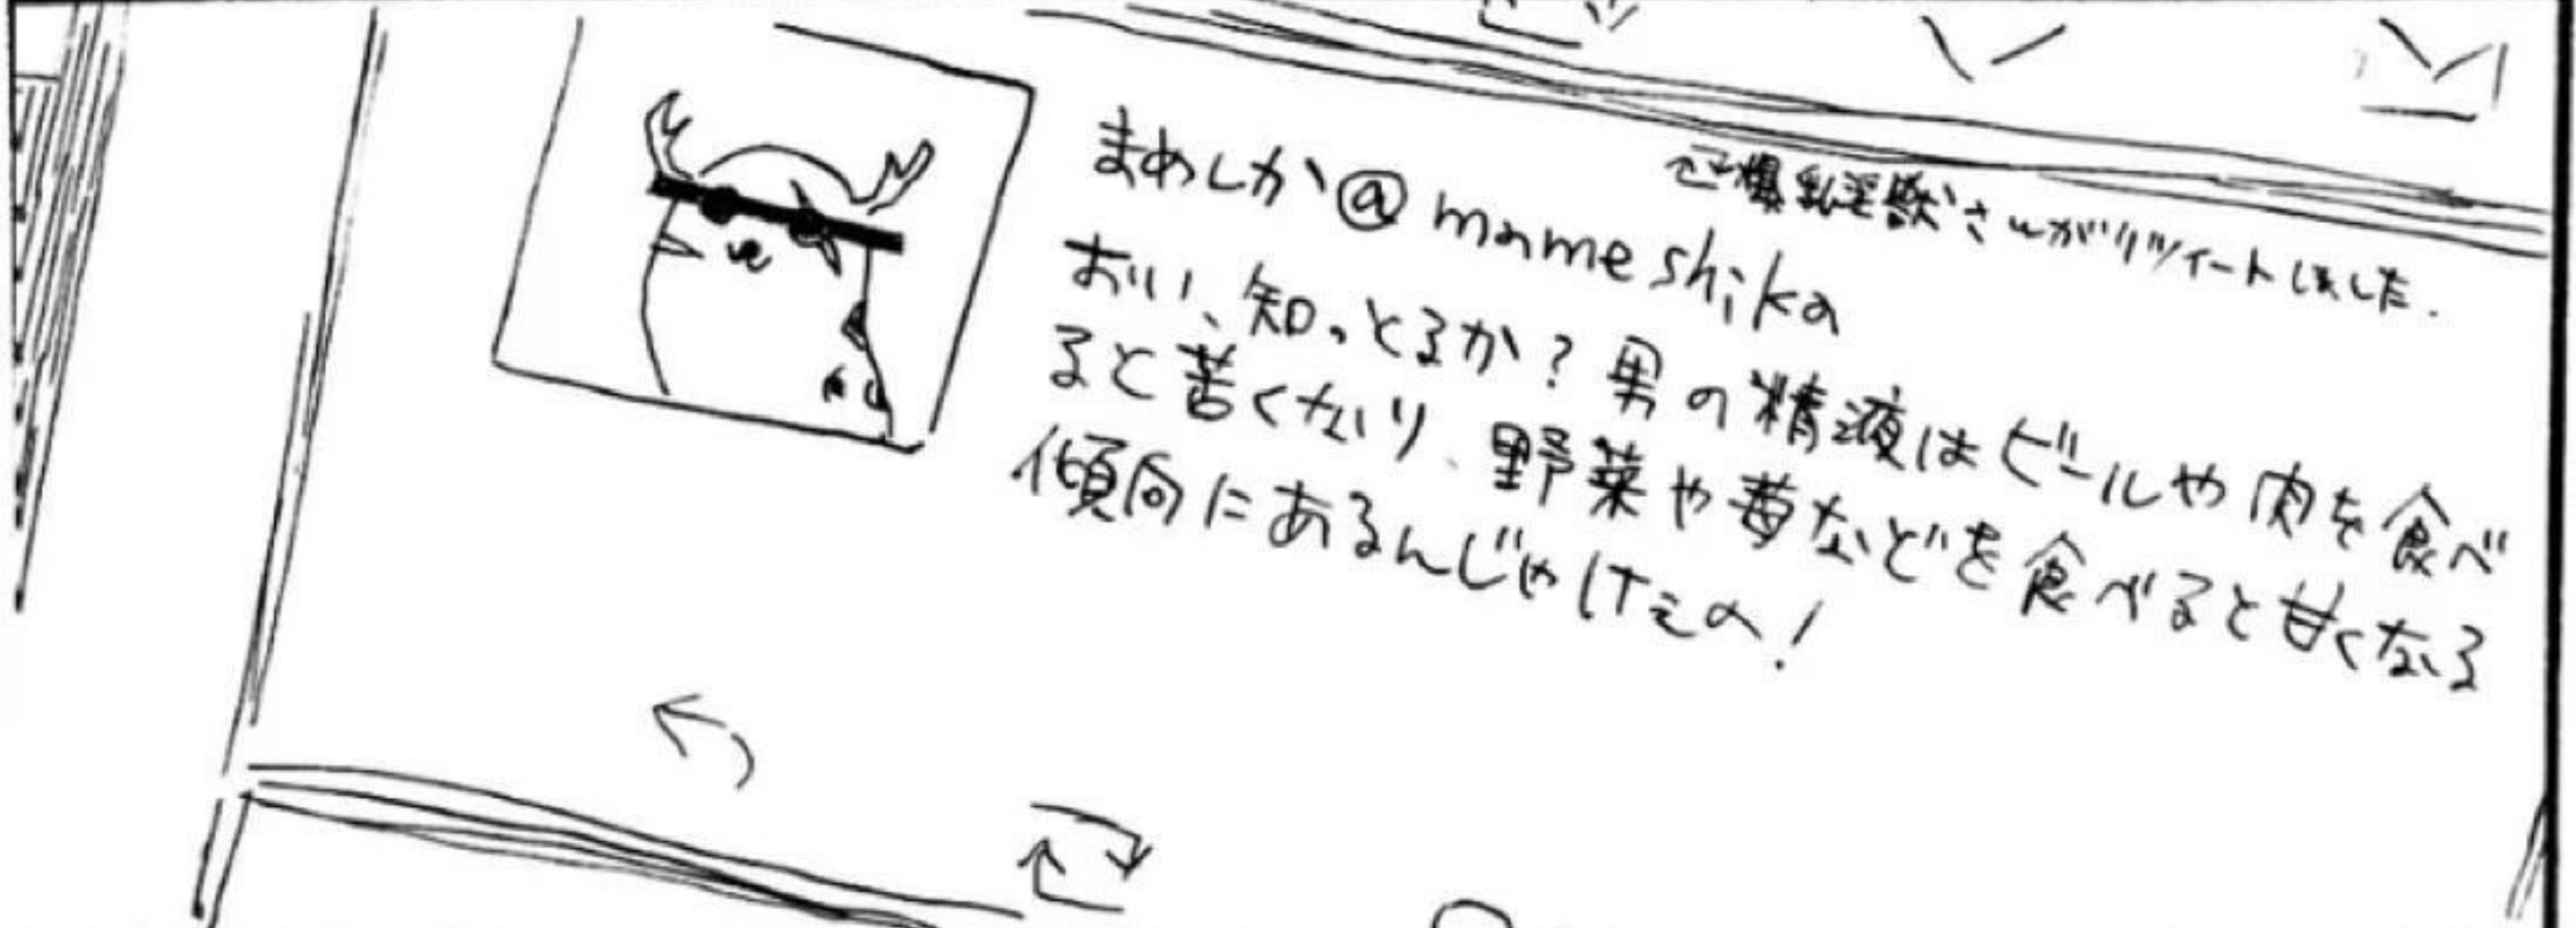 爆乳淫獣さんがリツイートしました.
まめしか@mameshika
おい、知っとるか?男の精液はビールや肉を食べ
ると苦くなり、野菜や苺などを食べると甘くなる
傾向にあるんじゃけぇの!